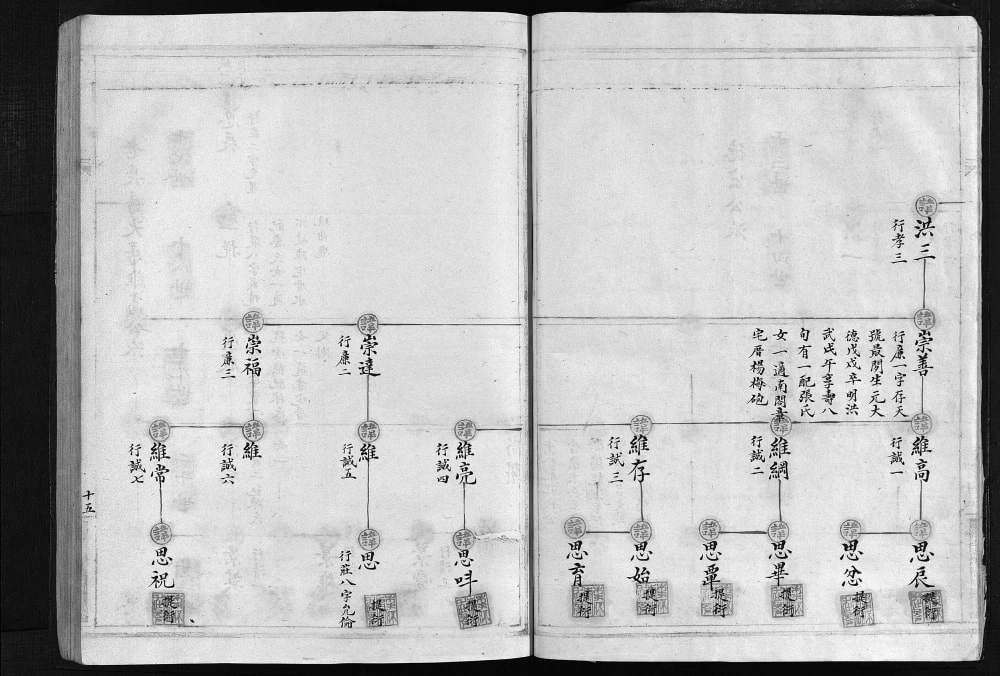 諱
洪三
行孝三
諱
崇善
行廉一字存天
號最閒生元大
德戊戌卒明洪
武戊午享壽八
旬有一配張氏
女一適南閣章
宅厝楊梅砲
諱
維高
行誠一
諱
維綱
行誠二
諱
維存
行誠三
諱
思辰
提衍
諱
思忿
提衍
諱
思畢
提衍
諱
思覃
提衍
諱
思始
提衍
諱
思育
提衍
諱
崇達
行廉二
諱
崇福
行廉三
諱
維亮
行誠四
諱
維
行誠五
諱
維
行誠六
諱
維常
行誠七
諱
思呌
提衍
諱
思
行莊八字允倫
提衍
諱
思祝
提衍
十五